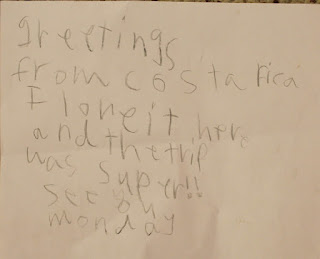 greetings
from costa rica
I love it here
and the trip
was super!!
see you
monday